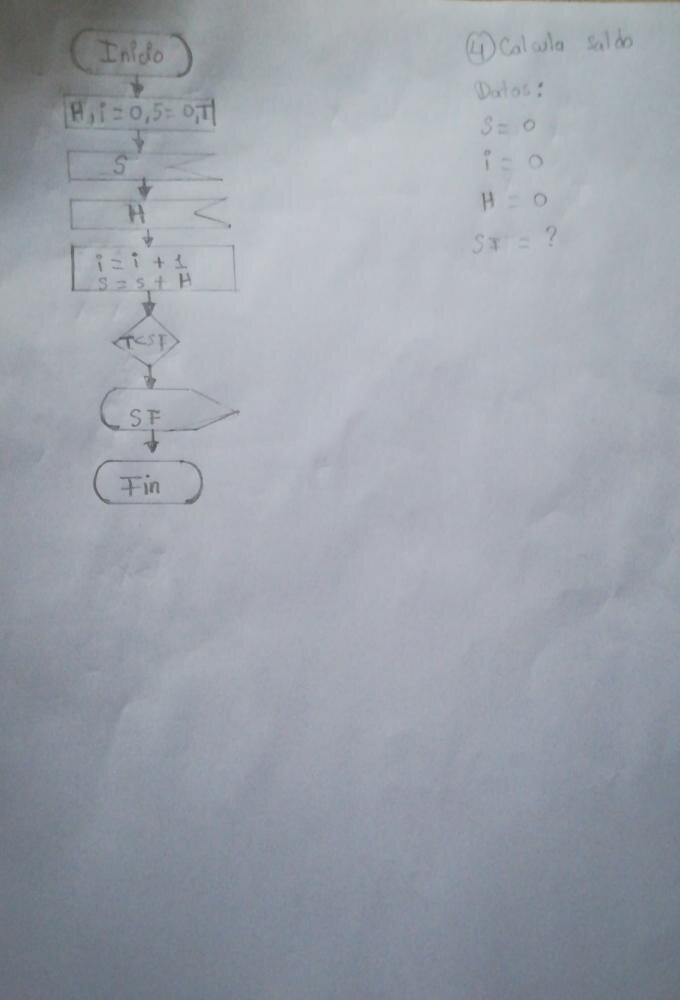 Inicio
H, i = 0, S = 0, T
S
H
i = i + 1
S = S + H
T < SF
SF
Fin
④ Calcula saldo
Datos:
S = 0
i = 0
H = 0
SF = ?